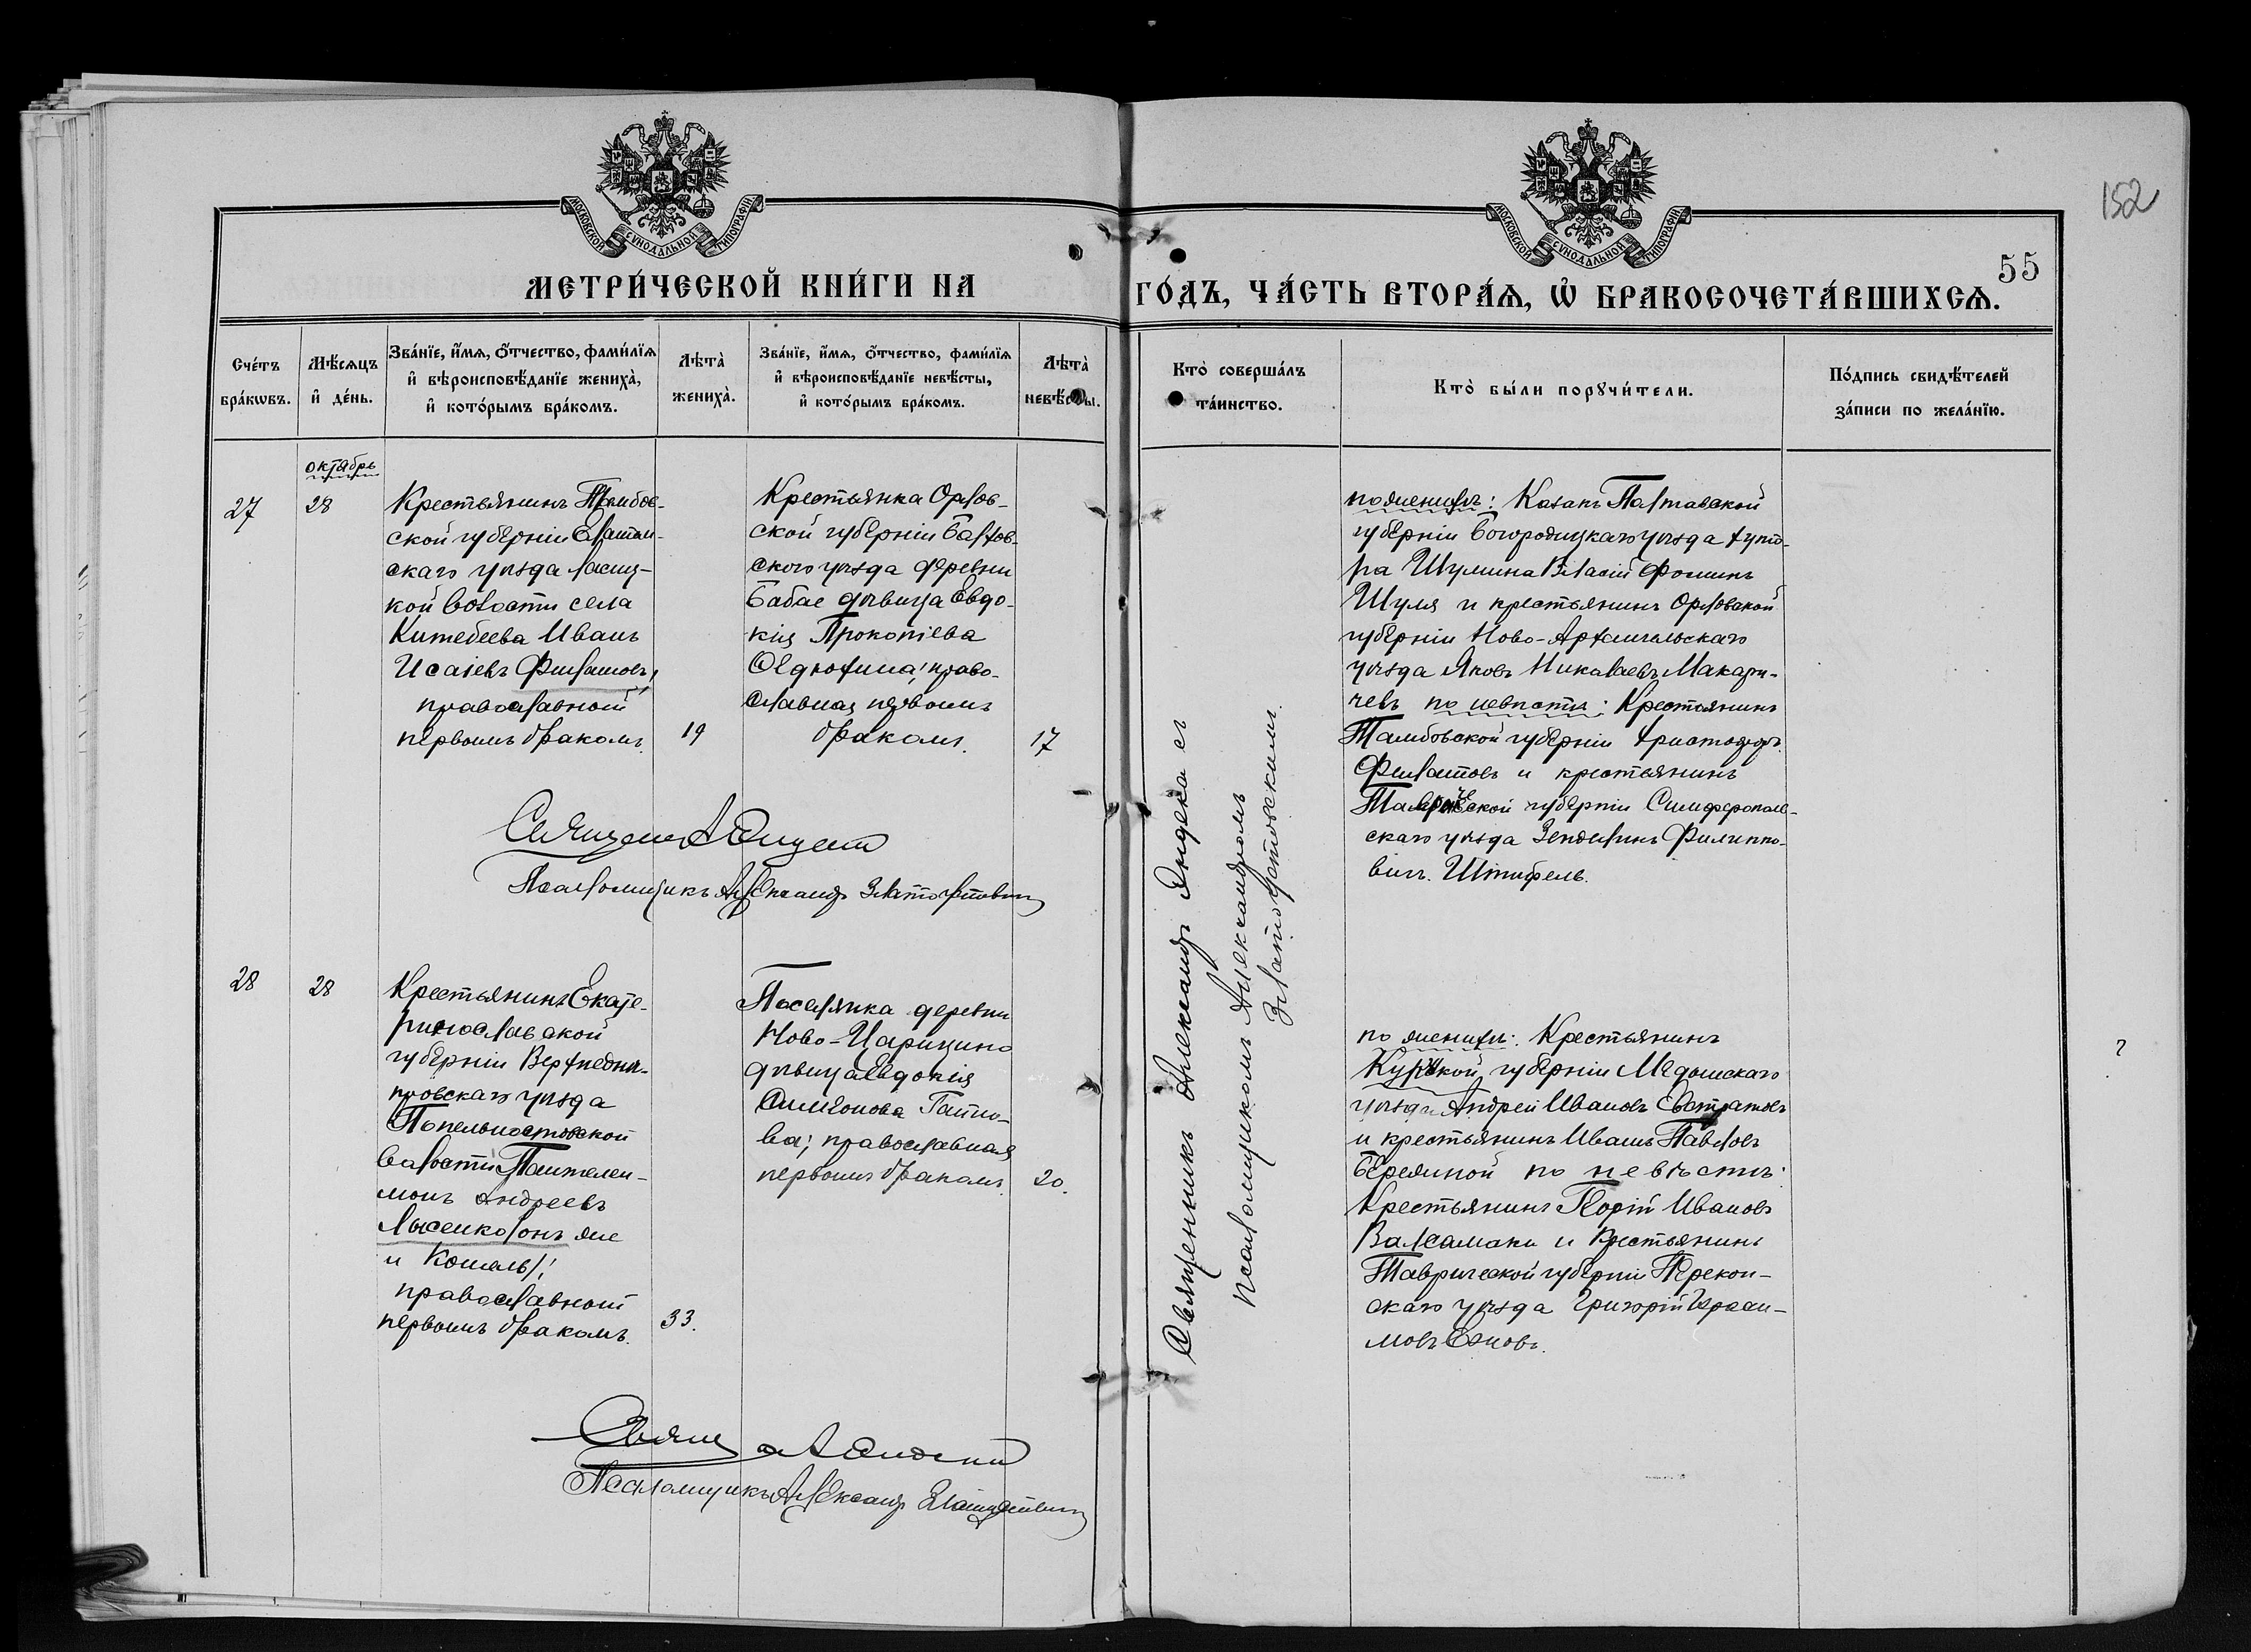 152
55
МОСКОВСКОЙ СѴНОДАЛЬНОЙ ТИПОГРАФІИ
МОСКОВСКОЙ СѴНОДАЛЬНОЙ ТИПОГРАФІИ
МЕТРИ́ЧЕСКОЙ КНИ́ГИ НА
ГО́ДЪ, ЧА́СТЬ ВТОРА́Ѧ, Ѡ҆ БРАКОСОЧЕТА́ВШИХСѦ.
Сче́тъ
бра́кѡвъ.
Мѣ́сѧцъ
и҆ де́нь.
Зва́нїе, и҆́мѧ, ѻ҆́тчество, фами́лїѧ
и҆ вѣроисповѣ́данїе жениха̀,
и҆ кото́рымъ бра́комъ.
Лѣта̀
жениха̀.
Зва́нїе, и҆́мѧ, ѻ҆́тчество, фами́лїѧ
и҆ вѣроисповѣ́данїе невѣ́сты,
и҆ кото́рымъ бра́комъ.
Лѣта̀
невѣ́сты.
Кто̀ соверша́лъ
та́инство.
Кто̀ бы́ли порꙋчи́тели.
По́дпись свидѣ́телей
за́писи по жела́нїю.
октябрь
27
28
Крестьянинъ Тамбов-
ской губерніи Елатом-
скаго уѣзда
кой волости села
Китебеева Иванъ
Исаіевъ Филатовъ,
православной
первымъ бракомъ.
19
Крестьянка Орлов-
ской губерніи Болхов-
ского уѣзда деревни
Бабае дѣвица Евдо-
кія Прокопіева
право-
славная первымъ
бракомъ.
17
Священникъ Александръ съ
псаломщикомъ Александромъ
Златоустовскимъ.
по женихѣ: Казакъ Полтавской
губерніи Богородицкаго уѣзда хуто-
ра Шулина Власій Фоминъ
Шуля и крестьянинъ Орловской
губерніи Ново-Архангельскаго
уѣзда Яковъ Николаевъ Макари-
чевъ по невѣсти: Крестьянинъ
Тамбовской губерніи Христофоръ
Филатовъ и крестьянинъ
Таврической губерніи Симферополь-
скаго уѣзда Филиппо-
вичъ Штифель.
Священ
Псаломщикъ Александръ Златоустовскій
28
28
Крестьянинъ Екате-
ринославской
губерніи Верхнедни-
провскаго уѣзда
Попельностовской
волости Пантелеи-
монъ Андреевъ
Лысенко /онъ же
и Кошель/;
православной
первымъ бракомъ.
33.
Поселянка деревни
Ново-Царицино
дѣвица Евдокія
Симеонова
ва; православная
первымъ бракомъ.
20.
по женихѣ: Крестьянинъ
Курской губерніи
уѣзда Андрей Ивановъ Евстратовъ
и крестьянинъ Иванъ Павловъ
Бережной по невѣстѣ:
Крестьянинъ Георгій Ивановъ
Валсамаки и Крестьянинъ
Таврической губерніи Перекоп-
скаго уѣзда Григорій Гераси-
мовъ
?
Священ
Псаломщикъ Александръ Златоустовскій